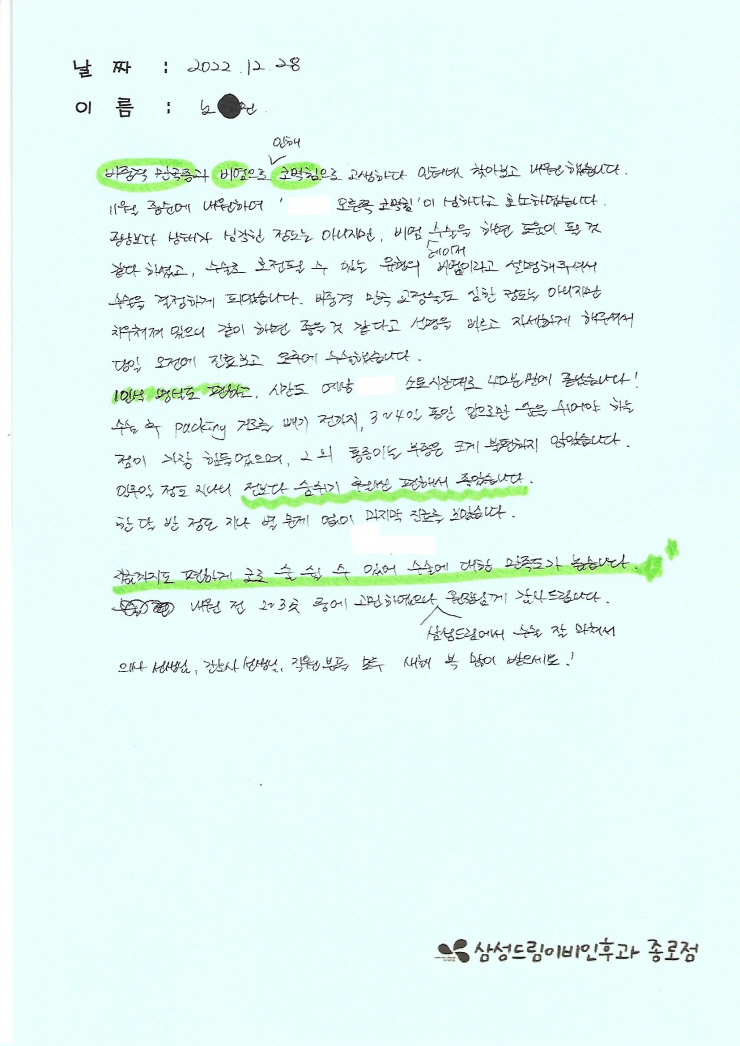 날 짜 : 2022. 12. 28
이 름 : 노
인해
비중격 만곡증과 비염으로 코막힘으로 고생하다 인터넷 찾아보고 내원했습니다.
11월 중순에 내원하여 ' 오른쪽 코막힘'이 심하다고 호소하였습니다.
증상보다 상태가 심각한 정도는 아니지만, 비염 수술을 하면 도움이 될 것
레이저
같다 하셨고, 수술로 호전될 수 있는 유형의 비염이라고 설명해주셔서
수술을 결정하게 되었습니다. 비중격 만곡 교정술도 심한 정도는 아니지만
치우쳐져 있으니 같이 하면 좋을 것 같다고 설명을 자세하게 해주셔서
당일 오전에 진료보고 오후에 수술했습니다.
1인실 병실도 편하고, 시간도 예상 소요시간대로 40분만에 끝났습니다!
수술 후 packing 거즈를 빼기 전까지, 3~4일 동안 입으로만 숨을 쉬어야 하는
점이 가장 힘들었으며, 그 외 통증이나 부종은 크게 불편하지 않았습니다.
일주일 정도 지나니 전보다 숨쉬기 훨씬 편해서 좋았습니다.
한 달 반 정도 지나 별 문제 없이 마지막 진료를 보았습니다.
지금까지도 편하게 코로 숨 쉴 수 있어 수술에 대한 만족도가 높습니다.
내원 전 2~3곳 중에 고민하였으나 원장님께 감사드립니다.
삼성드림에서 수술 잘 마쳐서
의사 선생님, 간호사 선생님, 직원분들 모두 새해 복 많이 받으세요!
삼성드림이비인후과 종로점